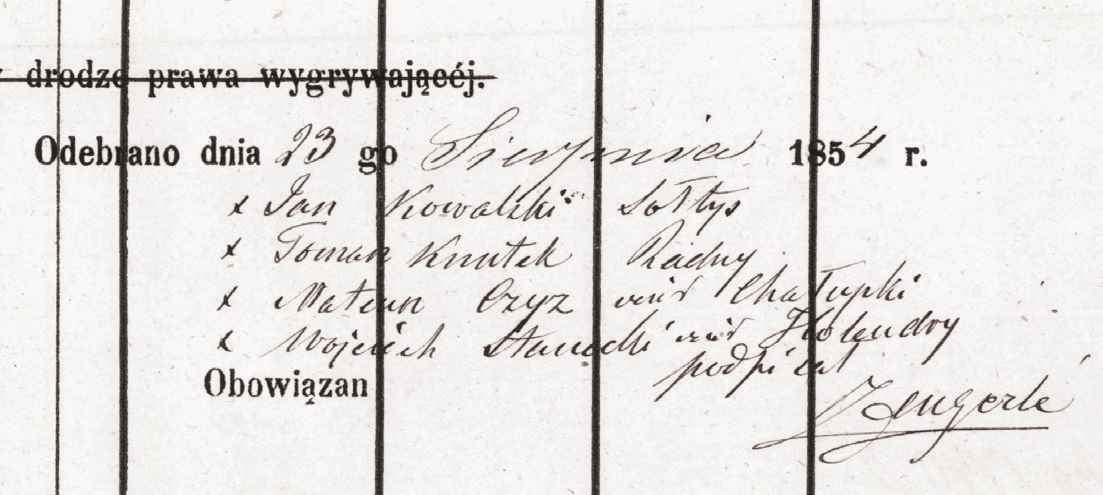 drodze prawa wygrywającéj.
Odebrano dnia 23 go Sierpnia 1854 r.
x Jan Kowalski Sołtys
x Toman Knutek Radny
x Mateusz Czyz wieś Chałupki
x Wojciech Stanecki wieś Holendry
podpisał
Obowiązan